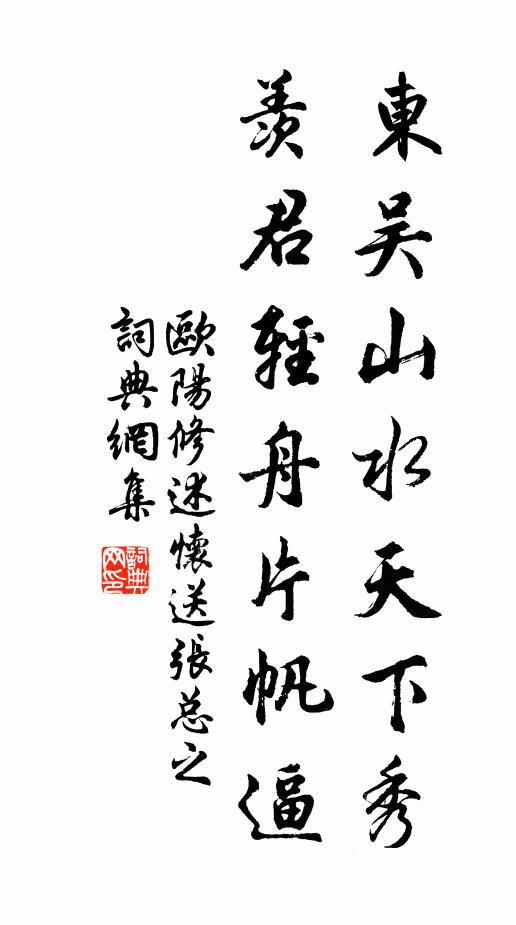 東吴山水天下秀
羨君輕舟片帆逼
歐陽修述懷送張总之
詞典網集
詞典网印